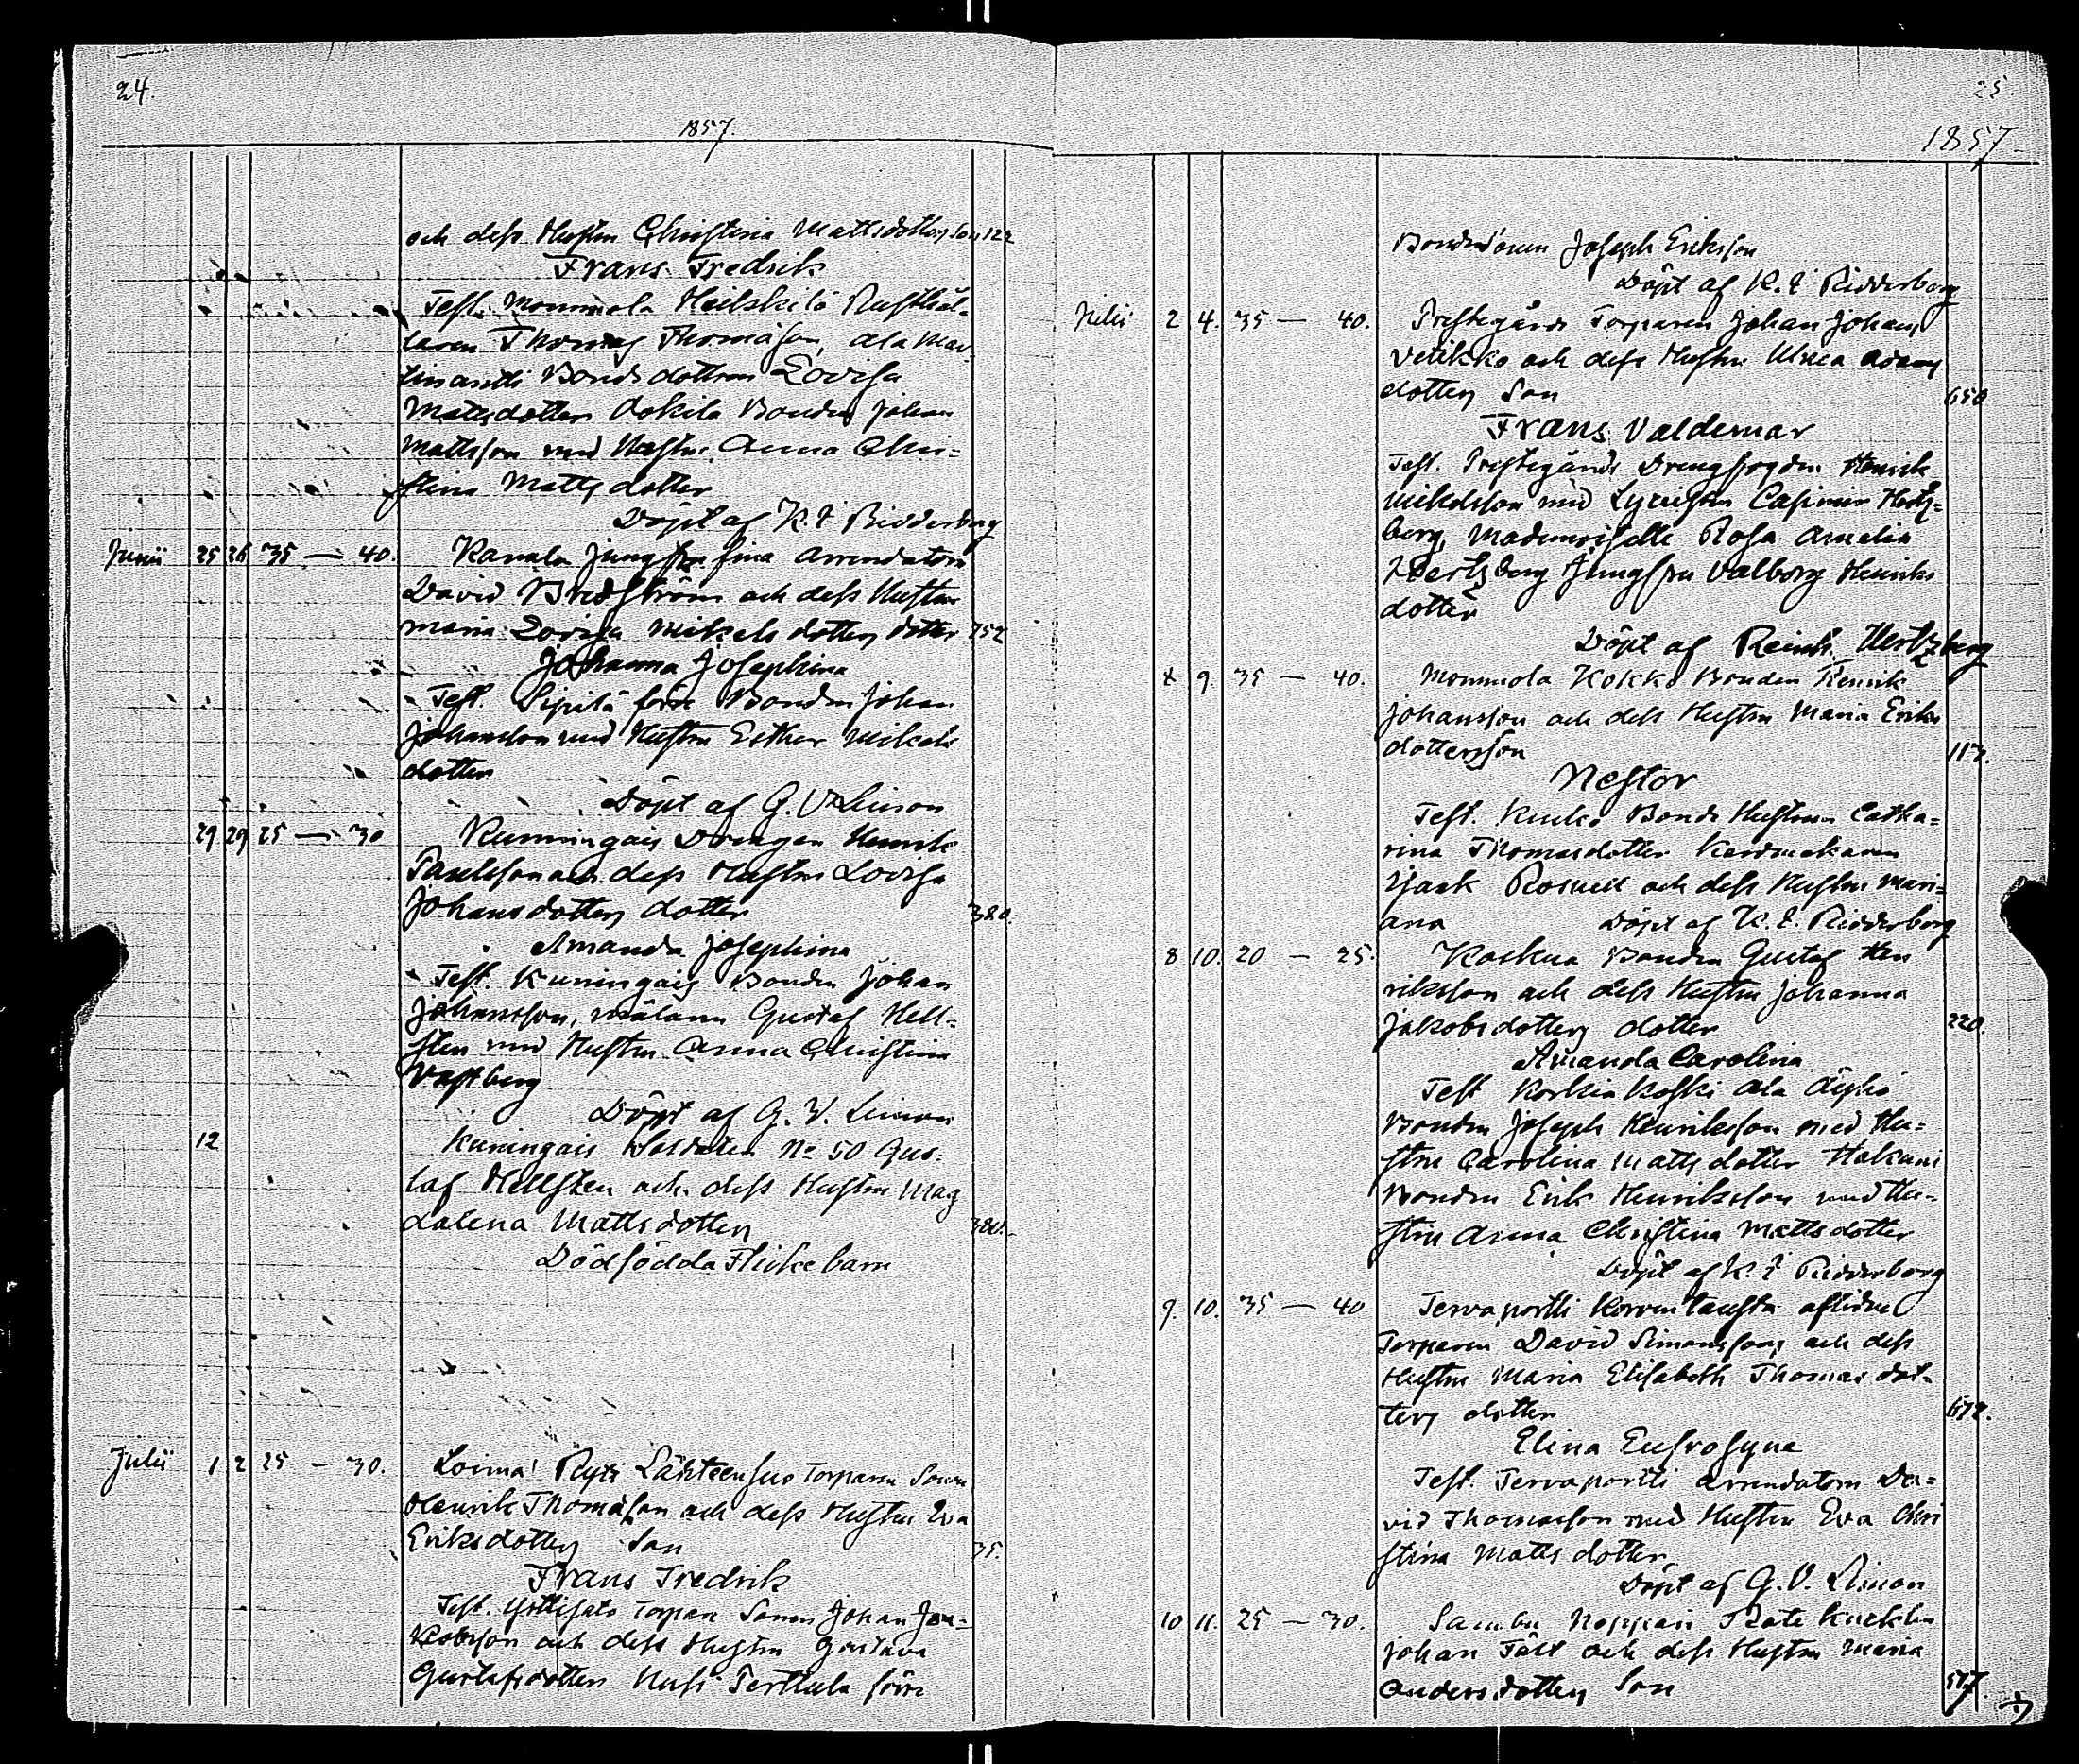 24.
1857.
och dess Hustru Christina Mattsdotters son 122
Frans Fredrik
Test. Mommola Heikkilä Rusthål-
laren Thomas Thomasson, Ala Mar-
tinantti Bondsdottren Lovisa
Mattsdotter Bonden Johan
Mattsson med Hustru Anna Chri-
stina Matts dotter
Döpt af K. E Ridderborg
Junii 25 26 35 — 40. Jungfru Arrendatorn
David och dess Hustru
Maria Lovisa Mikels dotters dotter 752
Johanna Josephina
Test. Sipilä förre Bonden Johan
Johansson med Hustru Esther Mikels
dotter
Döpt af G. V. Limon
29 29 25 — 30 Kuningais Drengen Henrik
Paulsson och dess Hustru Lovisa
Johansdotters dotter 380.
Amanda Josephina
Test. Kuningais Bonden Johan
Johansson, målaren Gustaf Hell-
sten med Hustru Anna Christina
Vastberg
Döpt af G. V. Limon
12 Kuningais Soldaten No 50 Gus-
taf Hellsten och dess Hustru Mag
dalena Mattsdotters
Dödfödda Flickebarn
Julii 1 2 25 — 30. Loima Ryti Torparen Sonen
Henrik Thomasson och dess Hustru Eva
Eriksdotters Son 35.
Frans Fredrik
Test. Torpare Sonen Johan Ja-
kobsson och dess Hustru Gustava
Gustafsdotter Perttula förre
25.
1857
Bonden Joseph Eriksson
Döpt af K. E Ridderborg
Julii 2 4. 35 — 40. Prestegårds Torparen Johan Johans
och dess Hustru Ulrica Adams
dotters Son 650
Frans Valdemar
Test. Prestegårds Drengfogden Henrik
Mikelsson med Casimir Hertz-
berg, Mademoiselle Rosa Amelia
Hertzberg Jungfru Valborg Henriks
dotter
Döpt af Reinh. Hertzberg
8 9. 35 — 40. Mommola Kokko Bonden Henrik
Johansson och dess Hustru Maria Eriks
dotters son 113.
Nestor
Test. Bonde Hustrun Catha-
rina Thomasdotter
Isaak och dess Hustru Mari-
ana Döpt af K. E. Ridderborg
8 10. 20 — 25. Koskua Bonden Gustaf Hen
riksson och dess Hustru Johanna
Jakobsdotters dotter 220.
Amanda Carolina
Test Korkiakoski Ala Äijhö
Bonden Joseph Henriksson med Hu-
stru Carolina Matts dotter Hakuni
Bonden Erik Henriksson med Hu-
stru Anna Christina Mattsdotter
Döpt af K. E Ridderborg
9. 10. 35 — 40 Tervaportti aflidne
Torparen David Simonssons och dess
Hustru Maria Elisabeth Thomas dot-
ters dotter
Elina Eufrosyne
Test. Tervaportti Arrendatorn Da-
vid Thomasson med Hustru Eva Chri
stina Matts dotter
Döpt af G. V. Limon
10 11. 25 — 30. Sambu Noppari Rote Kusken
Johan Fält och dess Hustru Maria
Anders dotters Son 517.